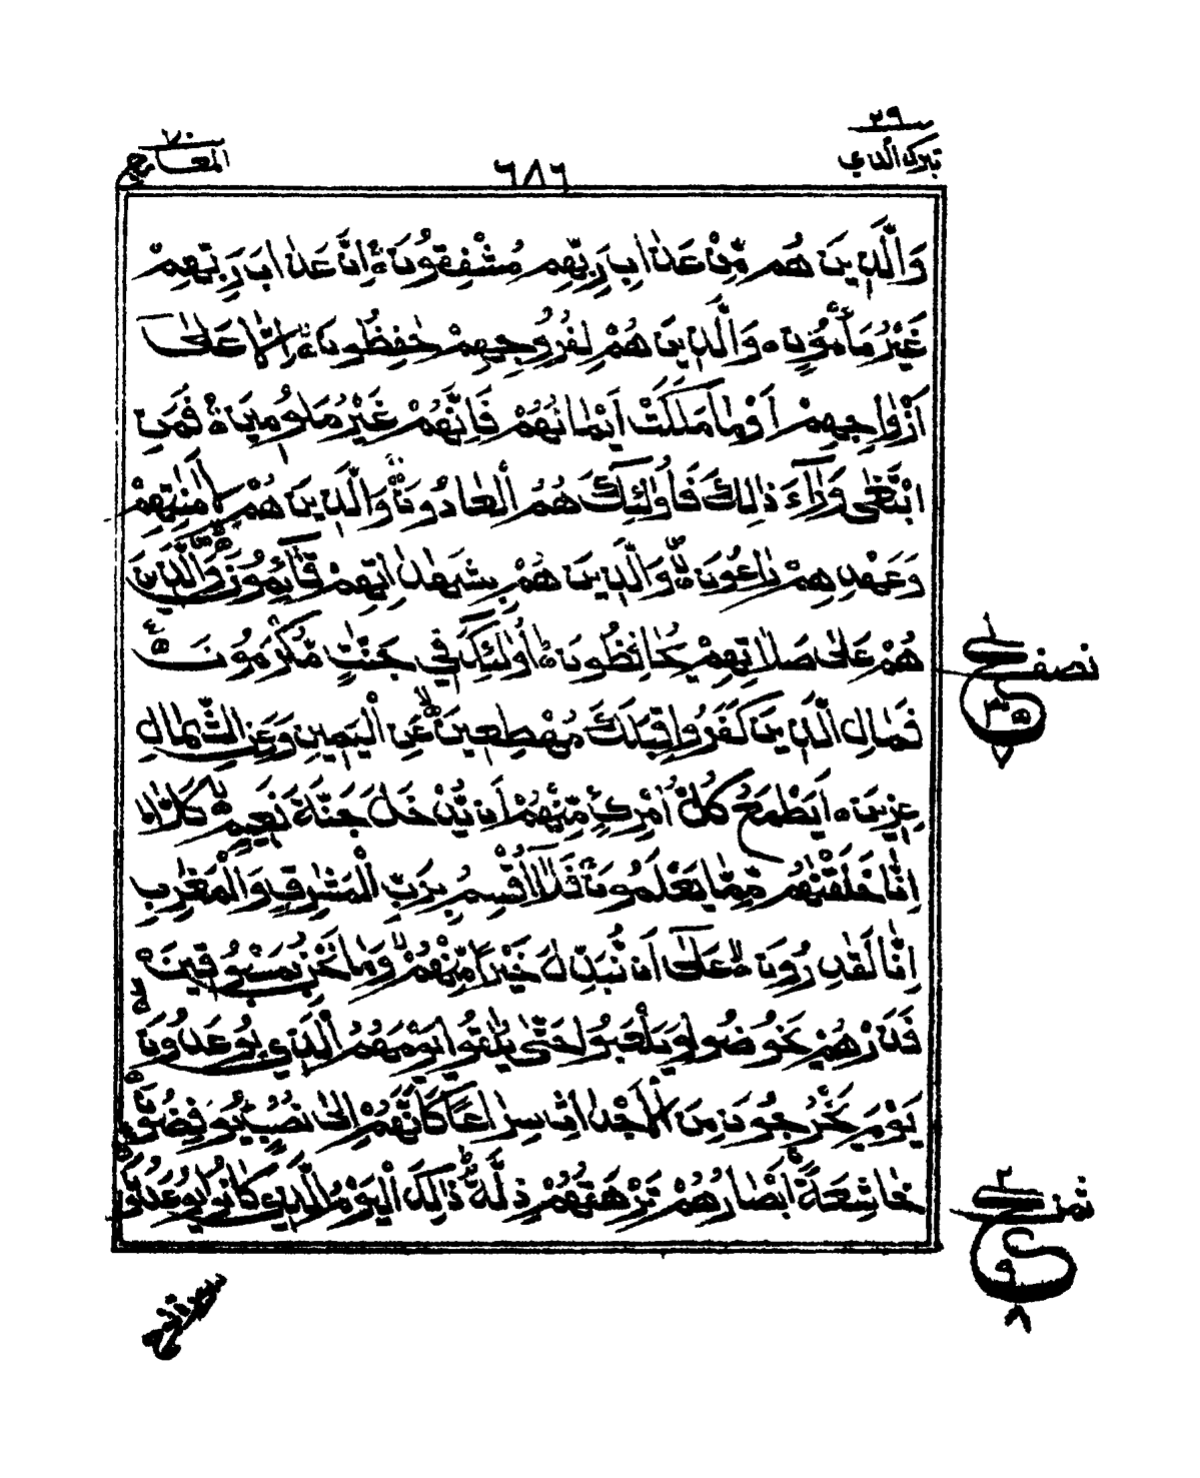 ٢٩
تبرك الذي
٦٨٦
٧٠
المعارج
وَالَّذِينَ هُم مِّنْ عَذَابِ رَبِّهِم مُّشْفِقُونَ ۝ اِنَّ عَذَابَ رَبِّهِمْ
غَيْرُ مَأْمُونٍ ۝ وَالَّذِينَ هُمْ لِفُرُوجِهِمْ حٰفِظُونَ ۝ اِلَّا عَلٰى
أَزْوٰاجِهِمْ اَوْ مَا مَلَكَتْ اَيْمَانُهُمْ فَاِنَّهُمْ غَيْرُ مَلُومِينَ ۝ فَمَنِ
ابْتَغٰى وَرَآءَ ذَالِكَ فَاُولٰئِكَ هُمُ الْعَادُونَ ۝ وَالَّذِينَ هُمْ لِأَمٰنٰتِهِمْ
وَعَهْدِهِمْ رَاعُونَ ۝ وَالَّذِينَ هُمْ بِشَهٰدَاتِهِمْ قَآئِمُونَ ۝ وَالَّذِينَ
هُمْ عَلٰى صَلَاتِهِمْ يُحَافِظُونَ ۝ اُولٰئِكَ فِي جَنّٰتٍ مُّكْرَمُونَ ۝
فَمَالِ الَّذِينَ كَفَرُوا قِبَلَكَ مُهْطِعِينَ ۝ عَنِ الْيَمِينِ وَعَنِ الشِّمَالِ
عِزِينَ ۝ اَيَطْمَعُ كُلُّ امْرِئٍ مِّنْهُمْ اَن يُّدْخَلَ جَنَّةَ نَعِيمٍ ۝ كَلَّا
اِنَّا خَلَقْنٰهُم مِّمَّا يَعْلَمُونَ ۝ فَلَآ اُقْسِمُ بِرَبِّ الْمَشٰرِقِ وَالْمَغٰرِبِ
اِنَّا لَقٰدِرُونَ ۝ عَلٰٓى اَن نُّبَدِّلَ خَيْرًا مِّنْهُمْ وَمَا نَحْنُ بِمَسْبُوقِينَ ۝
فَذَرْهُمْ يَخُوضُوا وَيَلْعَبُوا حَتّٰى يُلٰقُوا يَوْمَهُمُ الَّذِي يُوعَدُونَ ۝
يَوْمَ يَخْرُجُونَ مِنَ الْأَجْدَاثِ سِرَاعًا كَاَنَّهُمْ اِلٰى نُصُبٍ يُّوفِضُونَ ۝
خَاشِعَةً أَبْصَارُهُمْ تَرْهَقُهُمْ ذِلَّةٌ ذَالِكَ الْيَوْمُ الَّذِي كَانُوا يُوعَدُونَ
١
نصف
ح
٣٥
٧
٢
ثمن
ح
٩
٨
سورة نوح